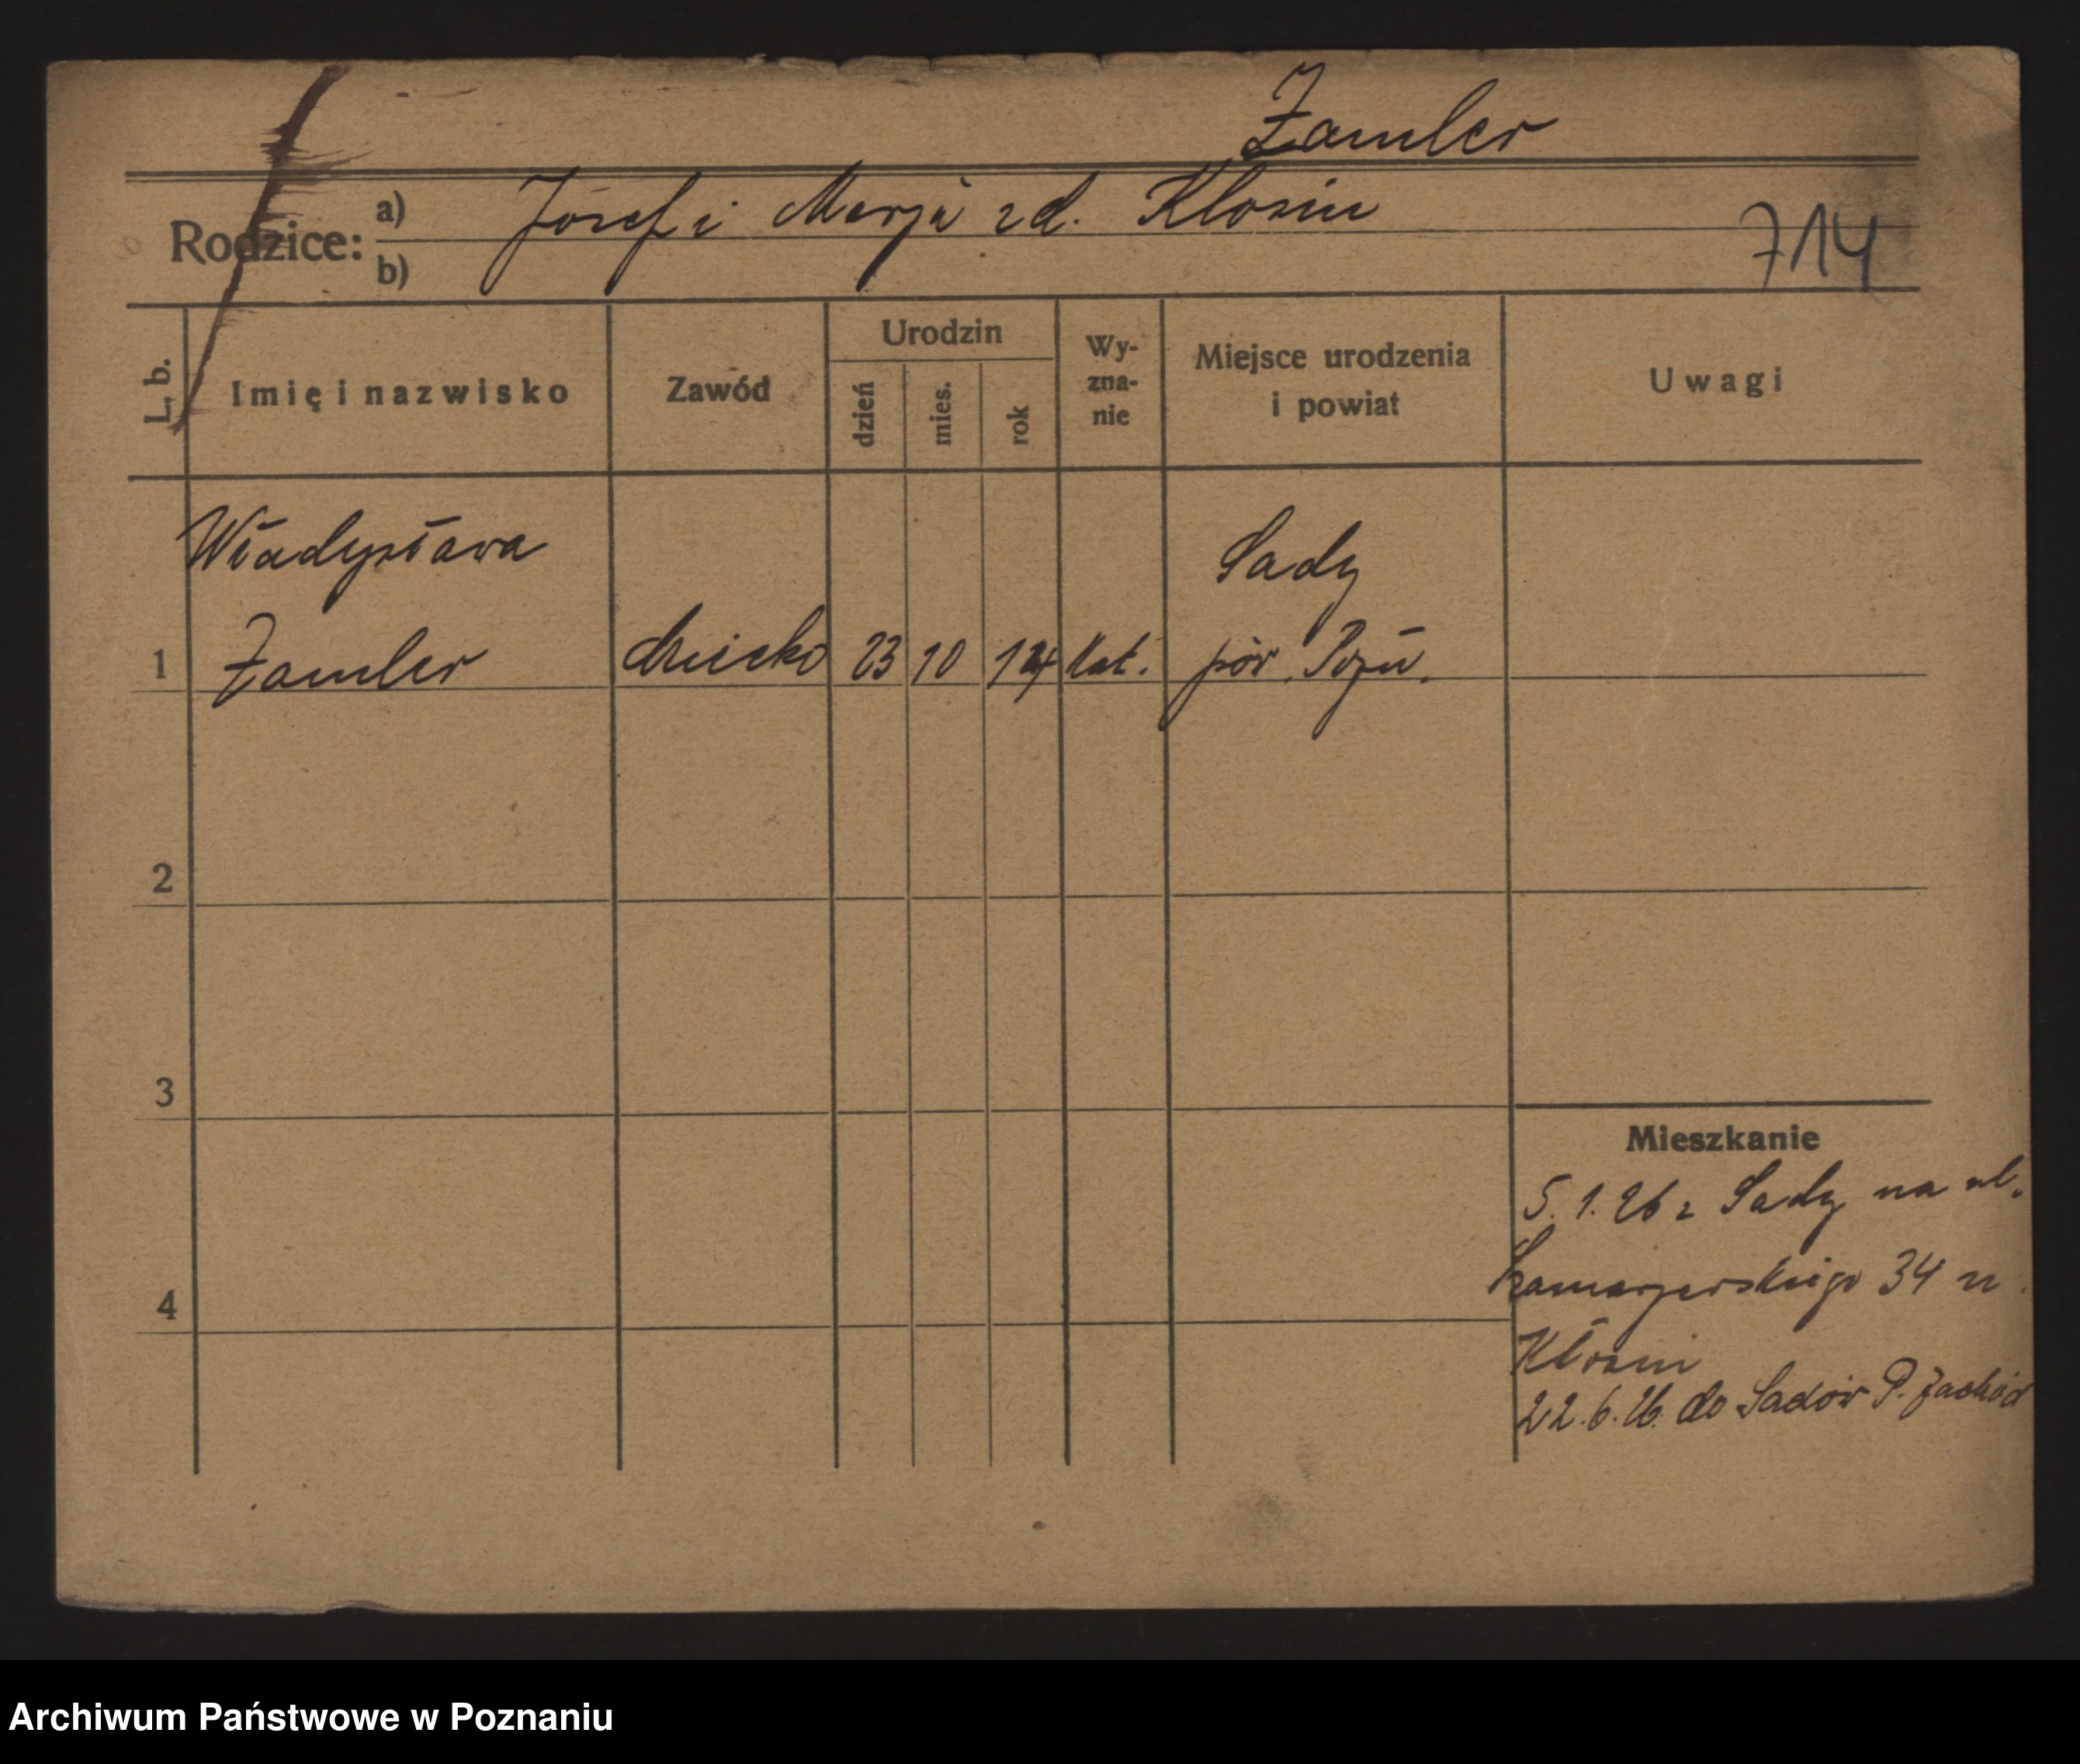 Żamler
Rodzice: a) Józef i Marja zd. Kłosin
b)
714
L. b.
Imię i nazwisko
Zawód
Urodzin
dzień
mies.
rok
Wy-
zna-
nie
Miejsce urodzenia
i powiat
Uwagi
Władysława
Sady
1 Żamler dziecko 23 10 14 kat. pow. Pozń.
2
3
4
Mieszkanie
5. 1. 26 z Sady na ul.
Szamarzewskiego 34 u
Kłosin
22. 6. 26. do Sadów P. Zachód
Archiwum Państwowe w Poznaniu